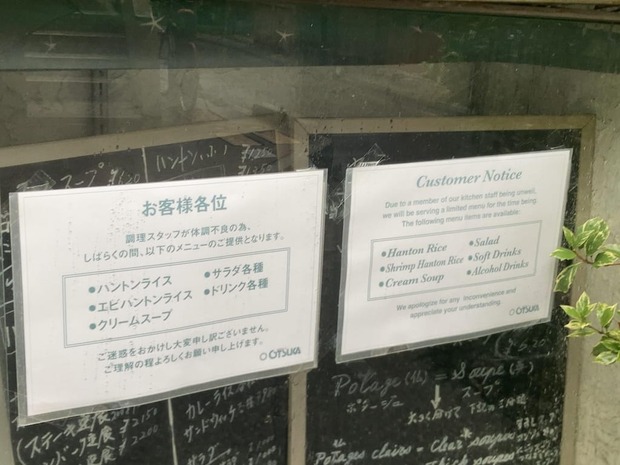 お客様各位
調理スタッフが体調不良の為、
しばらくの間、以下のメニューのご提供となります。
●ハントンライス
●エビハントンライス
●クリームスープ
●サラダ各種
●ドリンク各種
ご迷惑をおかけし大変申し訳ございません。
ご理解の程よろしくお願い申し上げます。
OTSUKA
Customer Notice
Due to a member of our kitchen staff being unwell,
we will be serving a limited menu for the time being.
The following menu items are available:
●Hanton Rice
●Shrimp Hanton Rice
●Cream Soup
●Salad
●Soft Drinks
●Alcohol Drinks
We apologize for any inconvenience and
appreciate your understanding.
OTSUKA
スープ
ハントンライス
Potage (仏) = Soupe (英)
ポタージュ
スープ
Potages clairs = Clear soupes
¥2150
¥2200
カレーライス
サンドウィッチ
サラダ